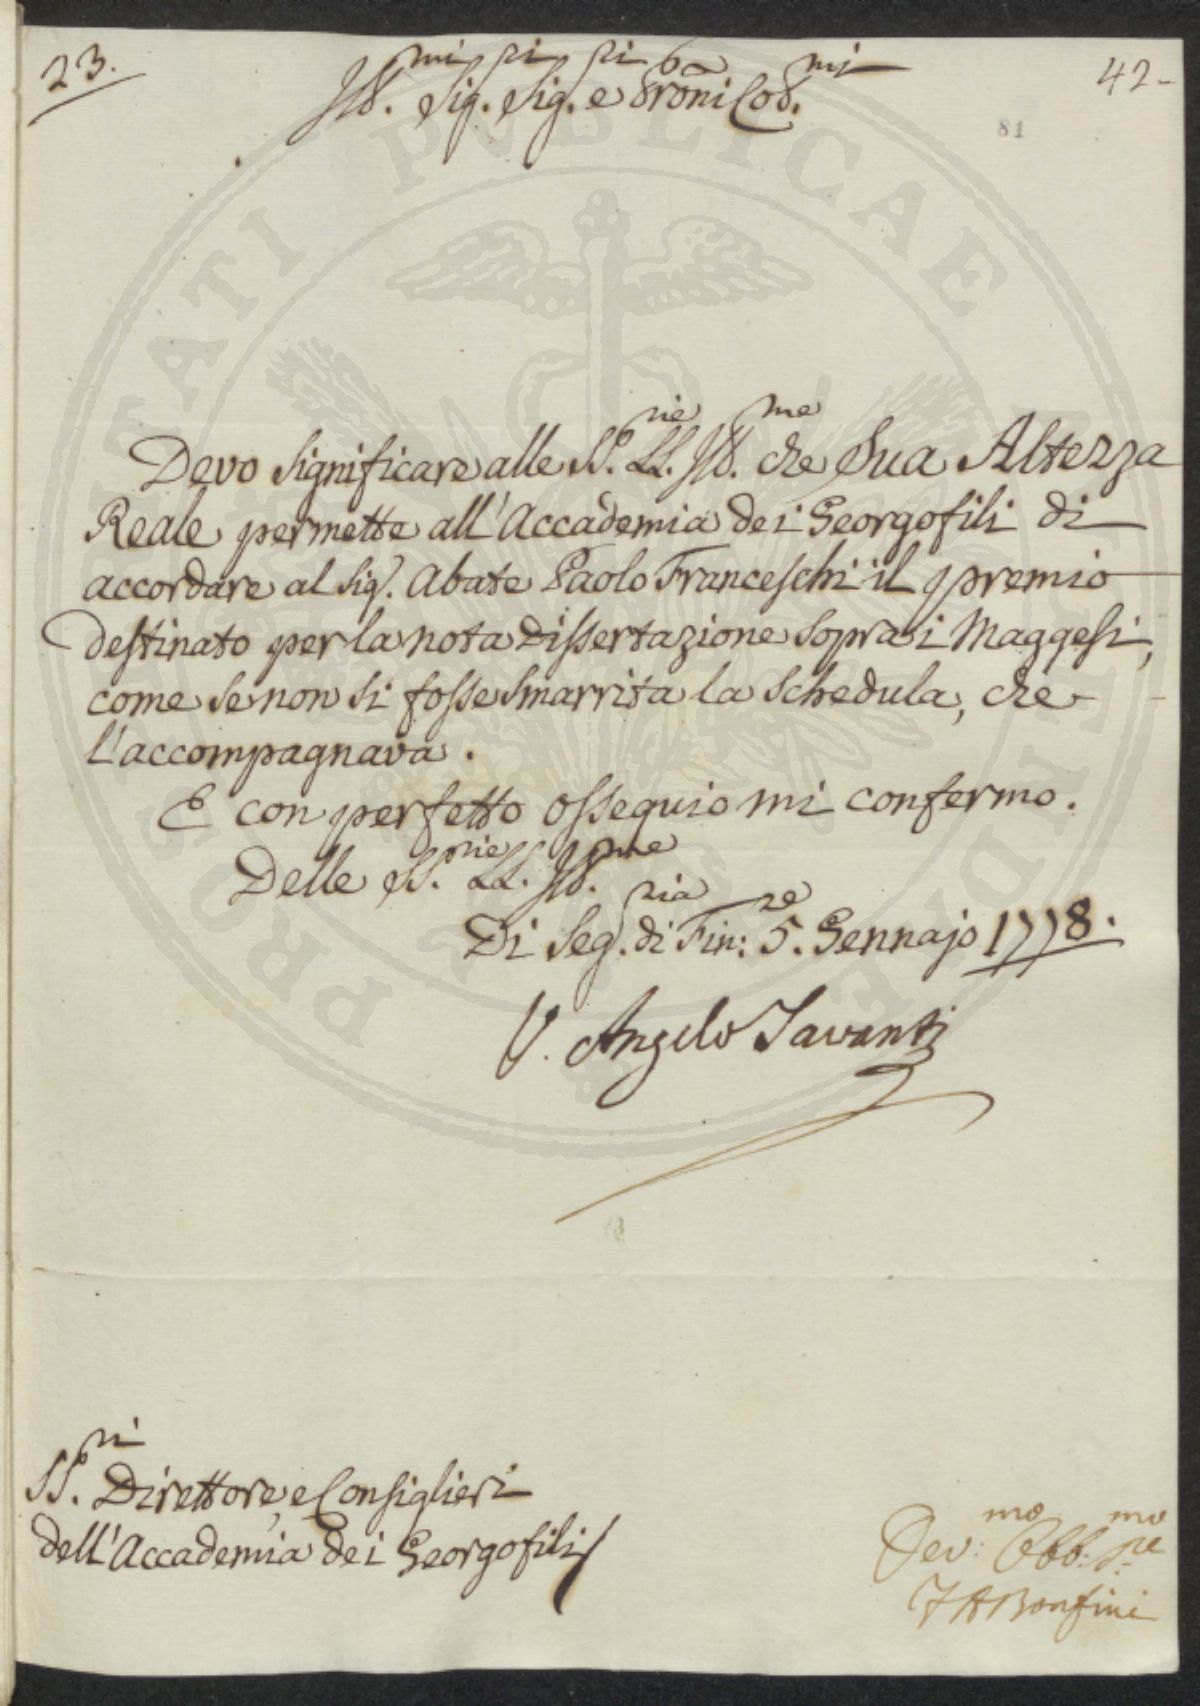 23.
42-
Ill.mi Sig.ri Sig.ri e Pròni Col.mi
81
Devo significare alle SS.rie LL. Ill.me che Sua Altezza
Reale permette all'Accademia dei Georgofili di
accordare al Sig.r Abate Paolo Franceschi il premio
destinato per la nota Dissertazione sopra i Maggesi,
come se non si fosse smarrita la schedula, che
l'accompagnava.
E con perfetto ossequio mi confermo.
Delle SS.rie LL. Ill.me
Di Seg.ria di Fin:ze 5. Gennajo 1778.
V. Angelo Tavanti
SS.ri Direttore, e Consiglieri
dell'Accademia dei Georgofili
Dev:mo Obb:mo S.re
F A Bonfini
PROSPERITATI PUBLICAE AUGENDAE